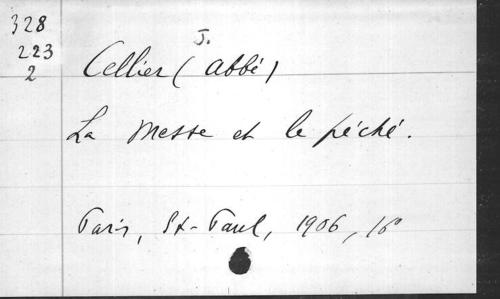 328
223
2
J.
Cellier (abbé)
La Messe et le péché.
Paris, St-Paul, 1906, 16º